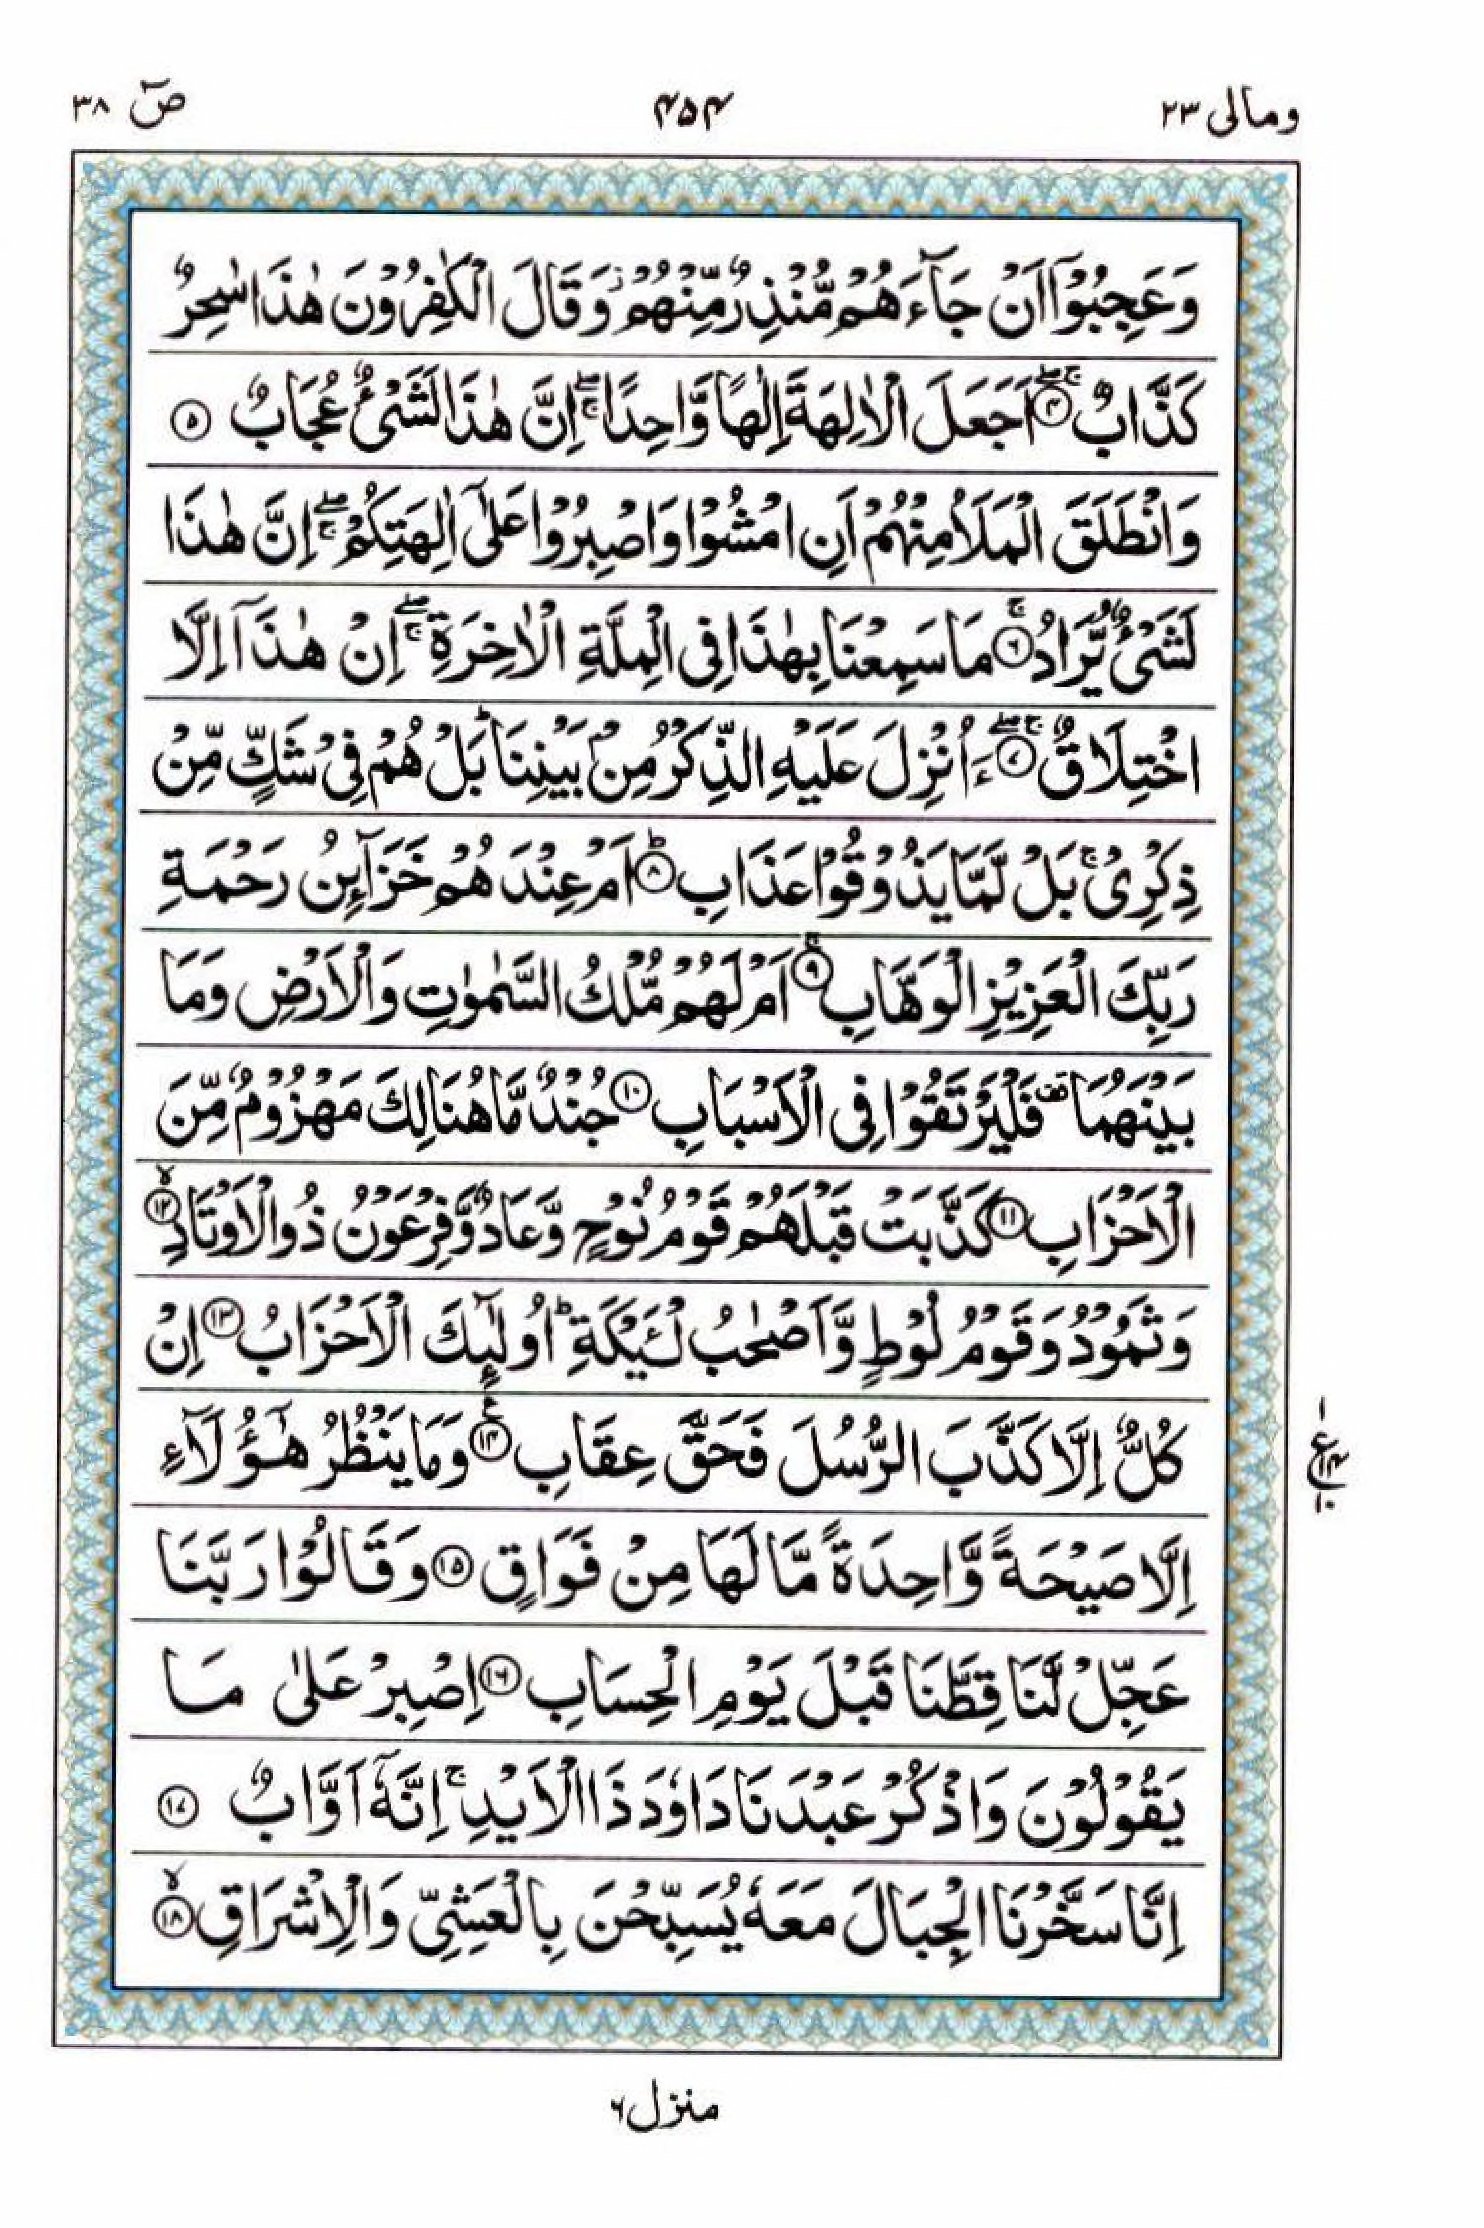 ومالی ٢٣
٤٥٤
صٓ ٣٨
وَعَجِبُوْۤا اَنْ جَآءَهُمْ مُّنْذِرٌ مِّنْهُمْ ز وَقَالَ الْكٰفِرُوْنَ هٰذَا سٰحِرٌ
كَذَّابٌ ۖۚ ﴿٤﴾ اَجَعَلَ الْاٰلِهَةَ اِلٰهًا وَّاحِدًا ۖۚ اِنَّ هٰذَا لَشَیْءٌ عُجَابٌ ﴿٥﴾
وَانْطَلَقَ الْمَلَاُ مِنْهُمْ اَنِ امْشُوْا وَاصْبِرُوْا عَلٰۤی اٰلِهَتِكُمْ ۖۚ اِنَّ هٰذَا
لَشَیْءٌ یُّرَادُ ۚ ﴿٦﴾ مَا سَمِعْنَا بِهٰذَا فِی الْمِلَّةِ الْاٰخِرَةِ ۖۚ اِنْ هٰذَاۤ اِلَّا
اخْتِلَاقٌ ۖۚ ﴿٧﴾ ءَاُنْزِلَ عَلَیْهِ الذِّكْرُ مِنْۢ بَیْنِنَا ؕ بَلْ هُمْ فِیْ شَكٍّ مِّنْ
ذِكْرِیْ ۚ بَلْ لَّمَّا یَذُوْقُوْا عَذَابِ ؕ ﴿٨﴾ اَمْ عِنْدَهُمْ خَزَآئِنُ رَحْمَةِ
رَبِّكَ الْعَزِیْزِ الْوَهَّابِ ۚ ﴿٩﴾ اَمْ لَهُمْ مُّلْكُ السَّمٰوٰتِ وَالْاَرْضِ وَمَا
بَیْنَهُمَا قف فَلْیَرْتَقُوْا فِی الْاَسْبَابِ ﴿١٠﴾ جُنْدٌ مَّا هُنَالِكَ مَهْزُوْمٌ مِّنَ
الْاَحْزَابِ ﴿١١﴾ كَذَّبَتْ قَبْلَهُمْ قَوْمُ نُوْحٍ وَّعَادٌ وَّفِرْعَوْنُ ذُو الْاَوْتَادِ ۙ ﴿١٢﴾
وَثَمُوْدُ وَقَوْمُ لُوْطٍ وَّاَصْحٰبُ لْـَٔیْكَةِ ؕ اُولٰٓئِكَ الْاَحْزَابُ ﴿١٣﴾ اِنْ
كُلٌّ اِلَّا كَذَّبَ الرُّسُلَ فَحَقَّ عِقَابِ ﴿١٤﴾ ع وَمَا یَنْظُرُ هٰۤؤُلَآءِ
١ ع ١٤ ١٠
اِلَّا صَیْحَةً وَّاحِدَةً مَّا لَهَا مِنْ فَوَاقٍ ﴿١٥﴾ وَقَالُوْا رَبَّنَا
عَجِّلْ لَّنَا قِطَّنَا قَبْلَ یَوْمِ الْحِسَابِ ﴿١٦﴾ اِصْبِرْ عَلٰی مَا
یَقُوْلُوْنَ وَاذْكُرْ عَبْدَنَا دَاوٗدَ ذَا الْاَیْدِ ۚ اِنَّهٗۤ اَوَّابٌ ﴿١٧﴾
اِنَّا سَخَّرْنَا الْجِبَالَ مَعَهٗ یُسَبِّحْنَ بِالْعَشِیِّ وَالْاِشْرَاقِ ۙ ﴿١٨﴾
منزل ٦